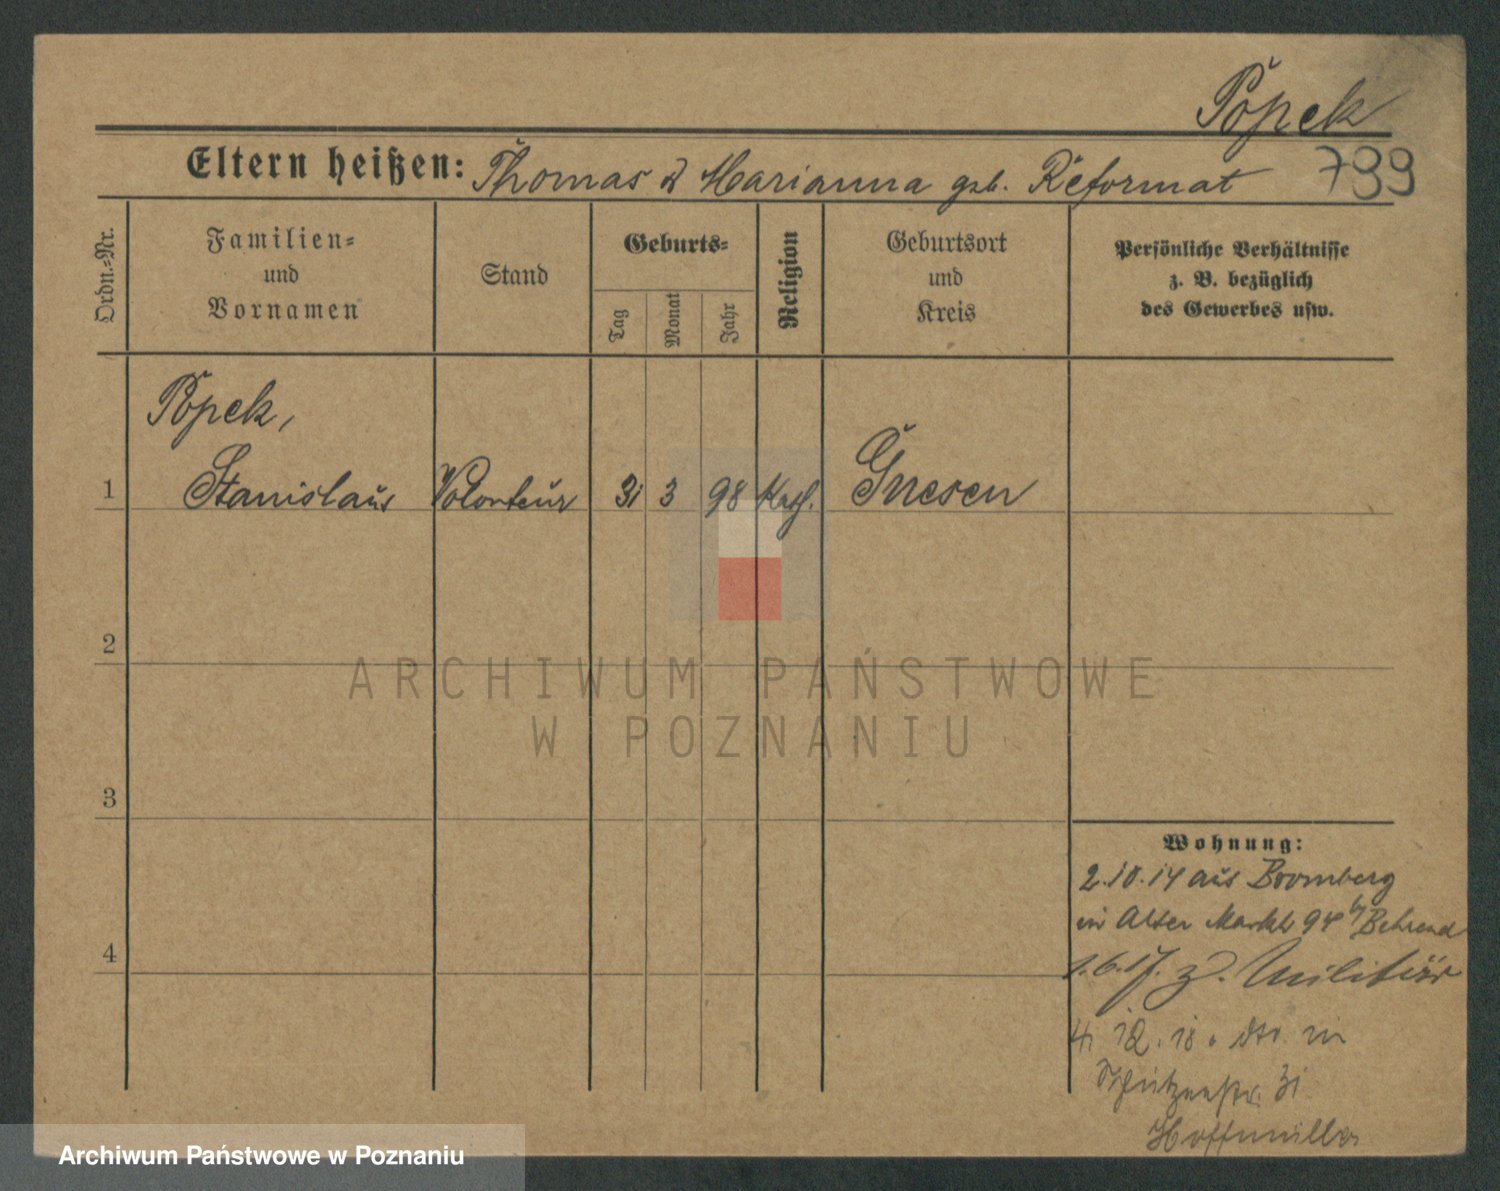 Popek
Eltern heißen: Thomas & Marianna geb. Reformat 799
Ordn.-Nr.
Familien-
und
Vornamen
Stand
Geburts-
Tag
Monat
Jahr
Religion
Geburtsort
und
Kreis
Persönliche Verhältnisse
z. B. bezüglich
des Gewerbes usw.
Popek,
1 Stanislaus Volonteur 31 3 98 Kath. Gnesen
2
ARCHIWUM PAŃSTWOWE
W POZNANIU
3
Wohnung:
2.10.14 aus Bromberg
in Alter Markt 94 by Behrend
4
1.6.17. z. Militär
4. 12. 18. dto. in
Schützenstr. 31
Hoffmüller
Archiwum Państwowe w Poznaniu